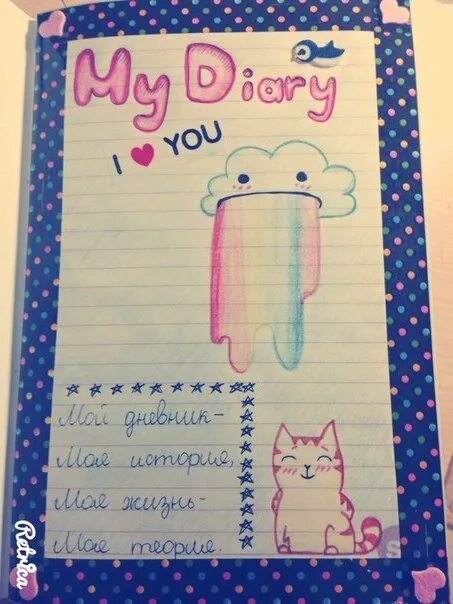 My Diary
I ♥ YOU
Мой дневник-
Моя история,
Моя жизнь-
Моя теория.
Retrica